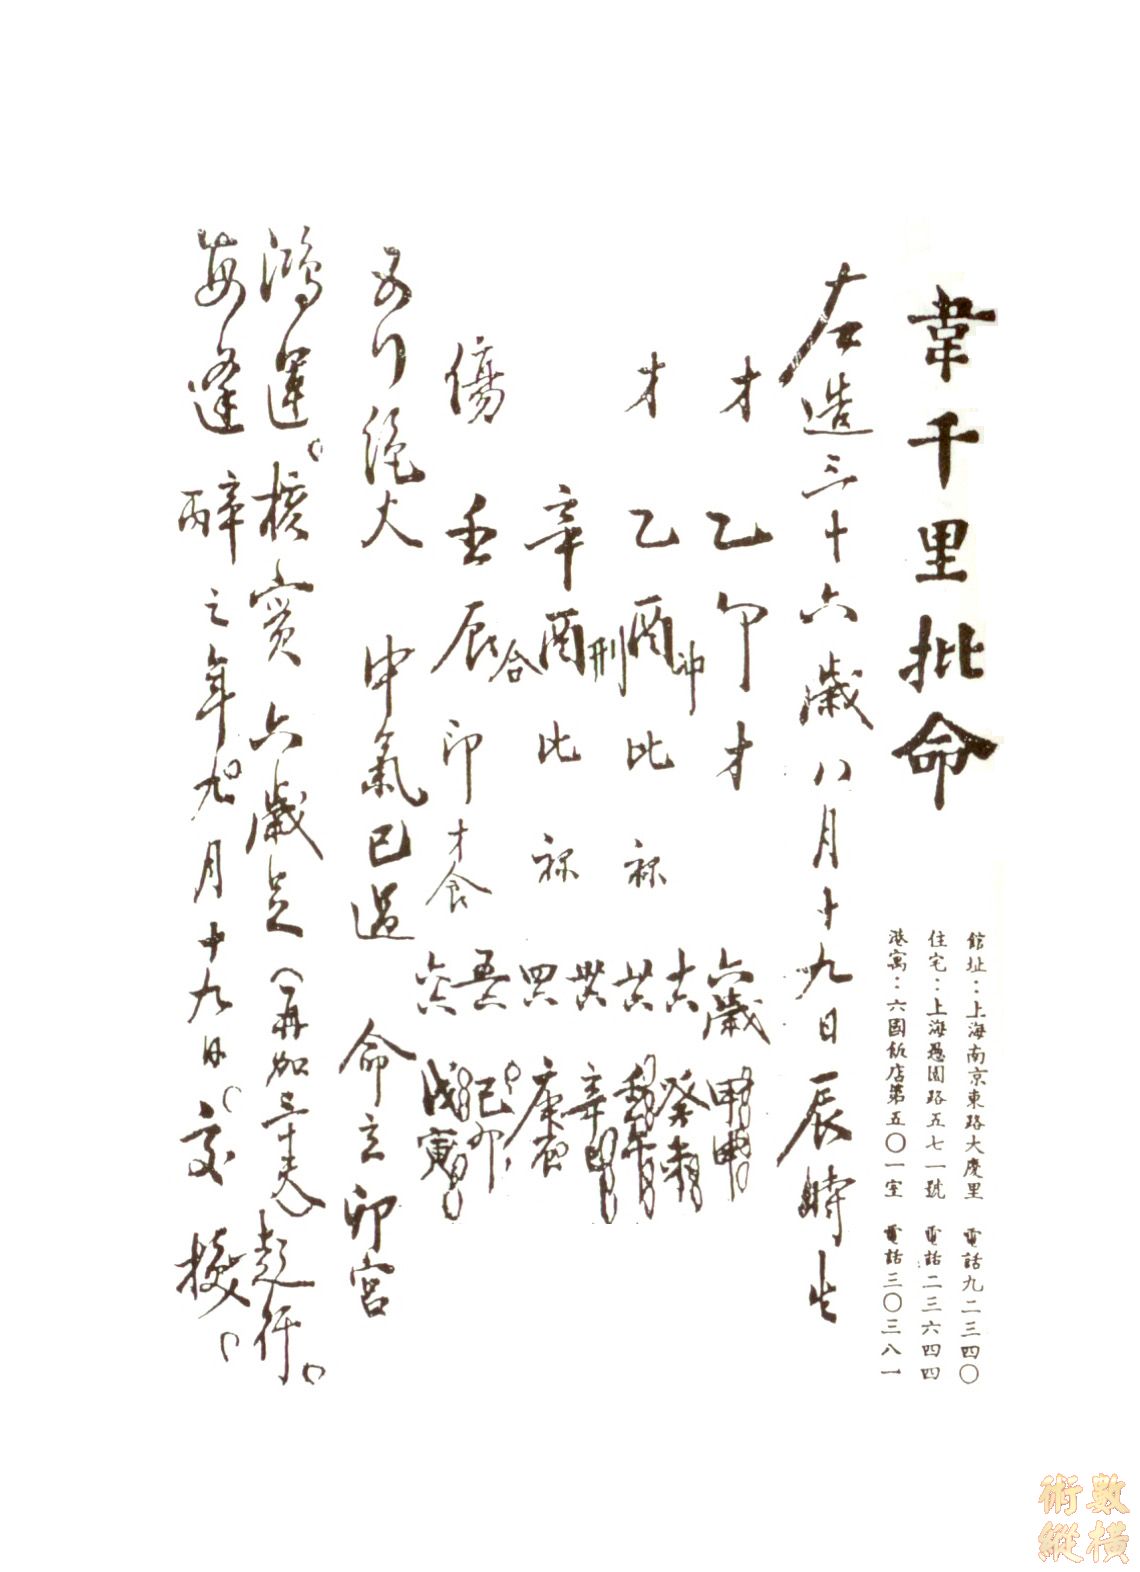 韋千里批命
館址：上海南京東路大慶里　電話九二三四〇
住宅：上海愚園路五七一號　電話二三六四四
港寓：六國飯店第五〇一室　電話三〇三八一
左造三十六歲八月十九日辰時生
才　乙卯　才
冲
才　乙酉　比　祿
刑
辛酉　比　祿
合
傷　壬辰　印才食
六歲　甲申
十六　癸未
廿六　壬午
卅六　辛巳
四六　庚辰
五六　己卯
六六　戊寅
五行絕火　中氣已過　命立卯宮
鴻運。核實六歲足（再加三十天）起行。
每逢丙辛之年九月十九日。交換。
數橫
術縱